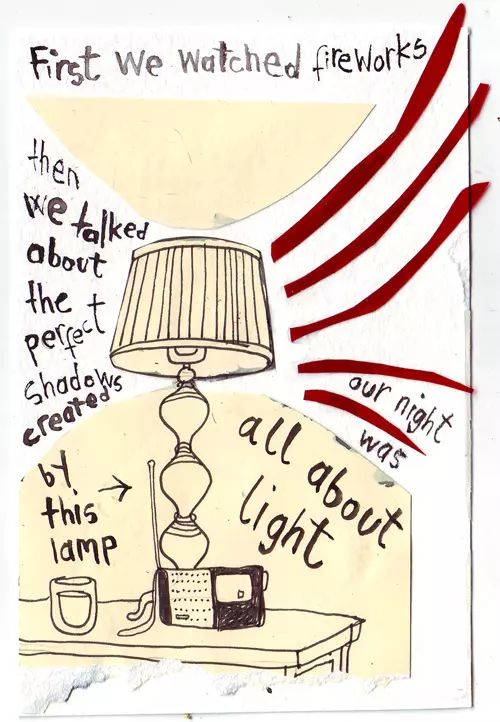 First we watched fireworks
then
we talked
about
the
perfect
shadows
created
by
this
lamp
our night
was
all about
light